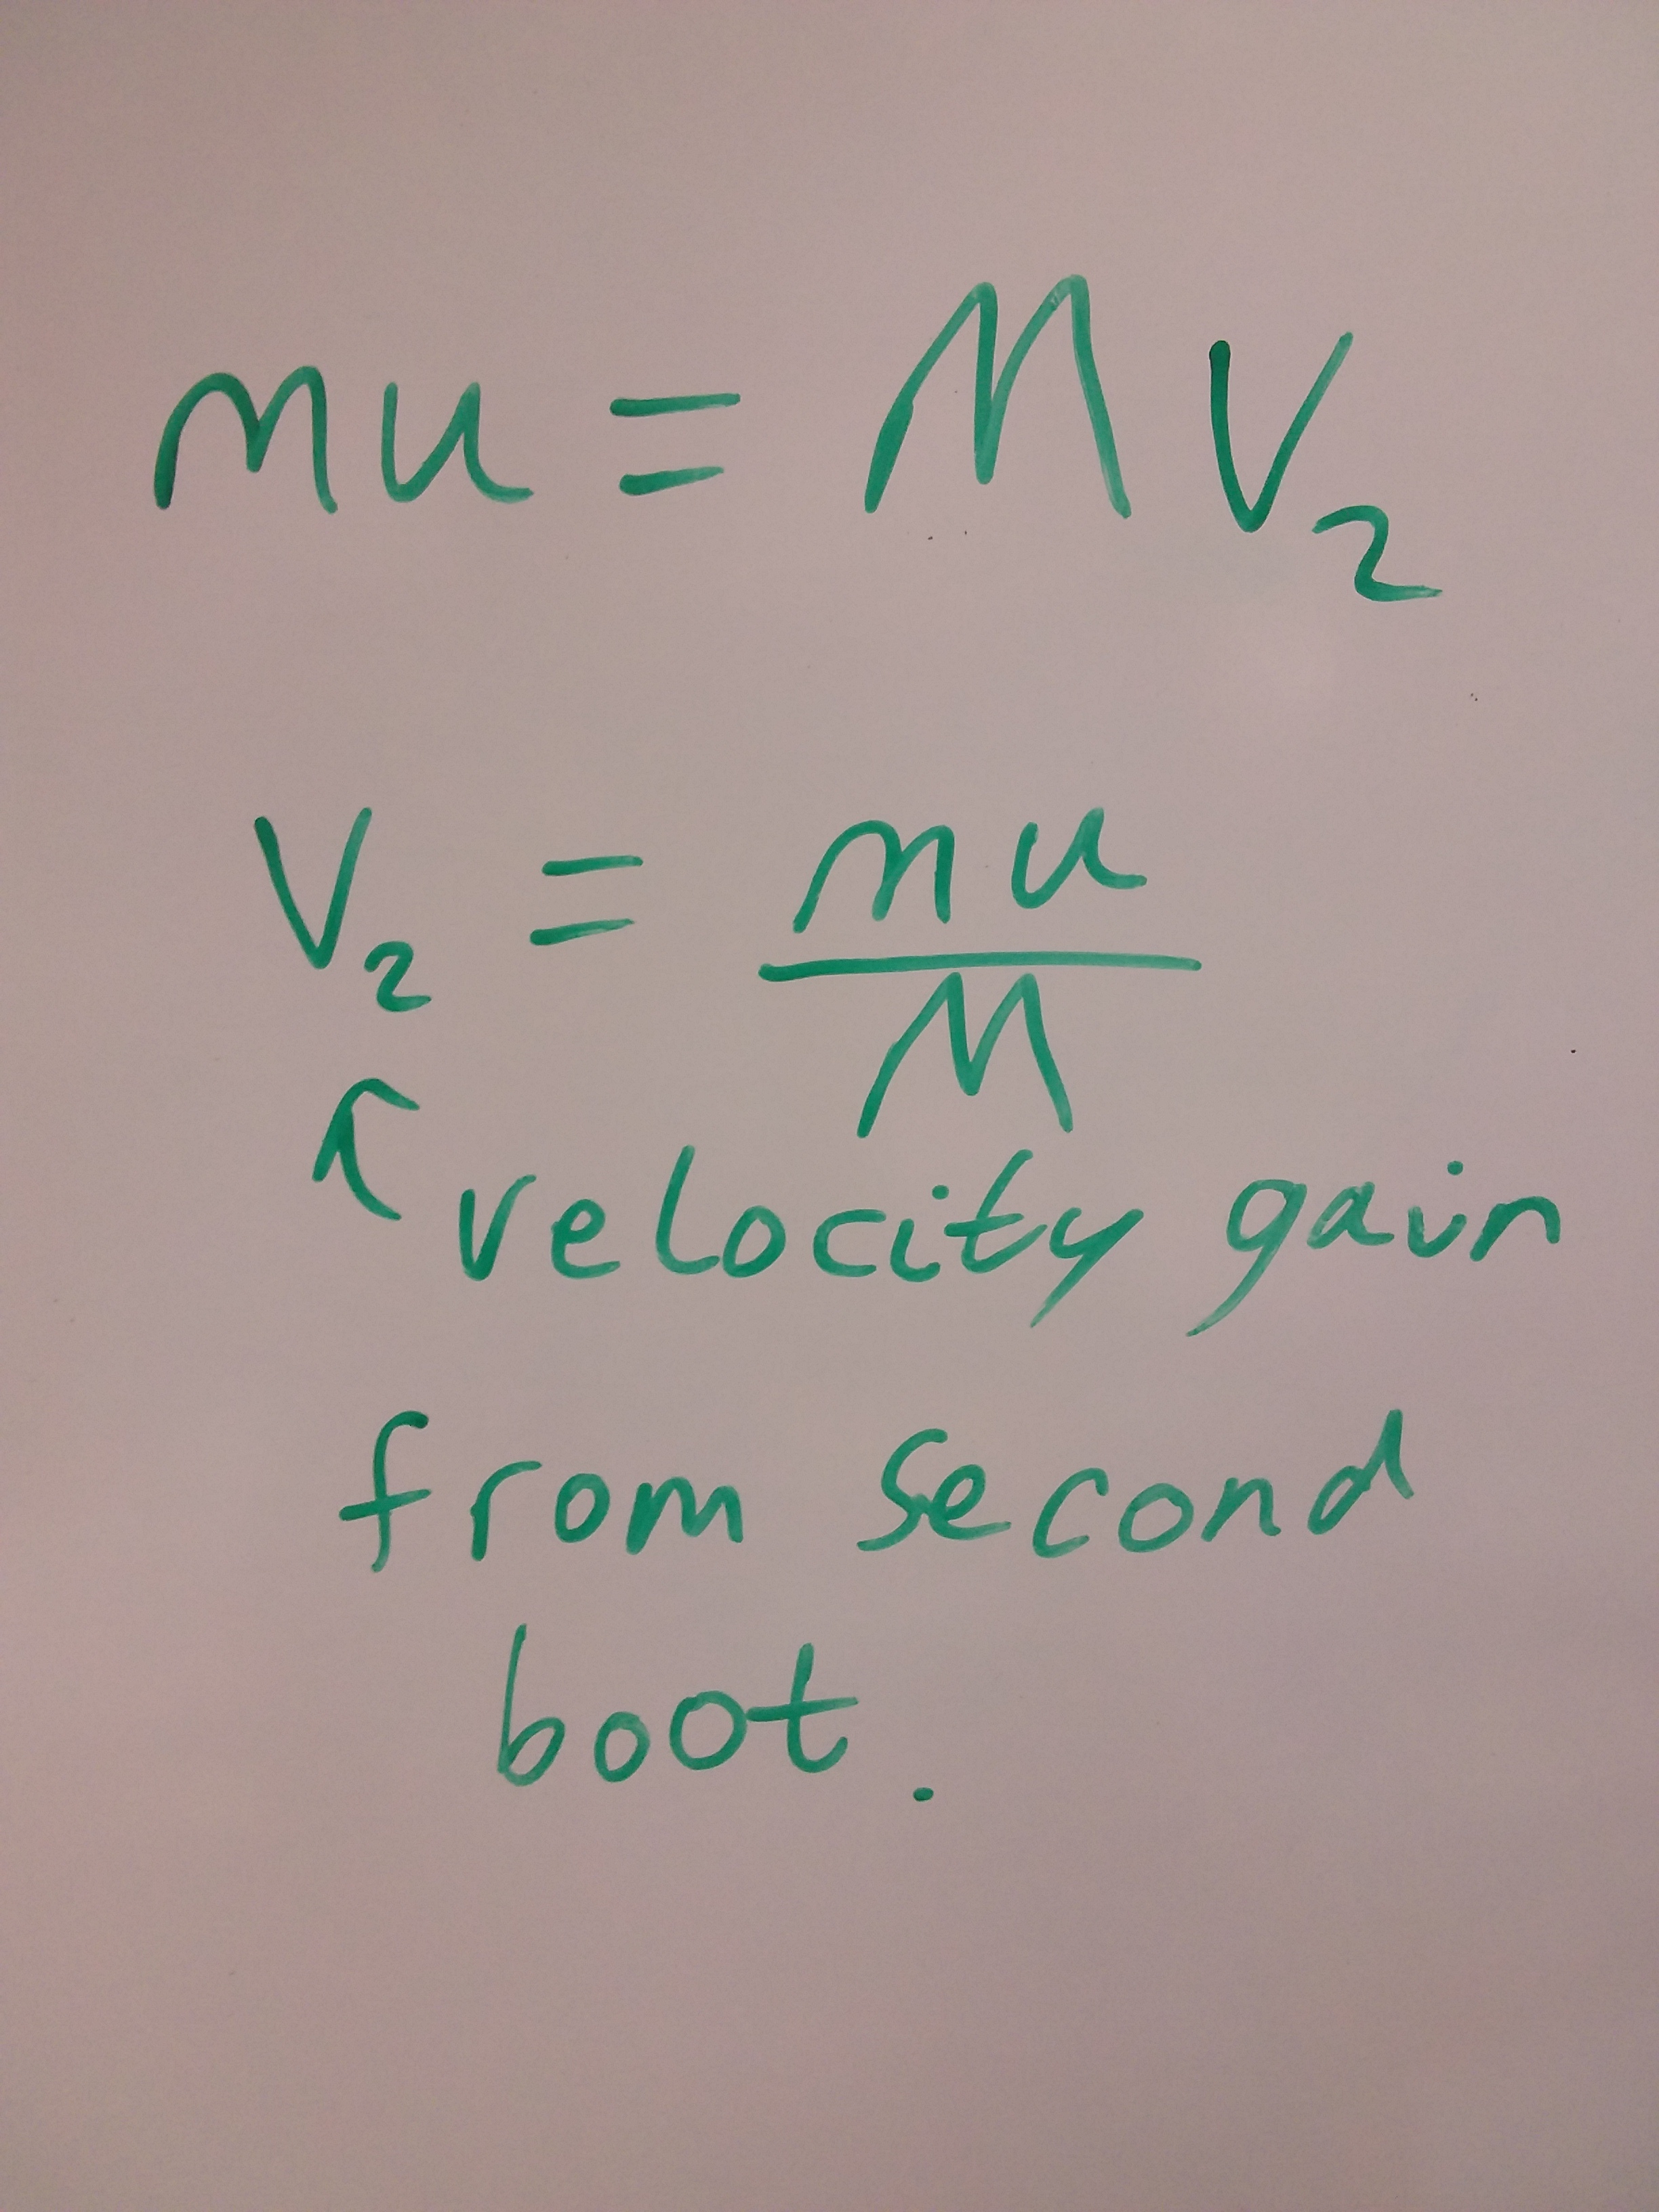 mu = MV₂
V₂ = mu/M
↖ velocity gain
from second
boot.